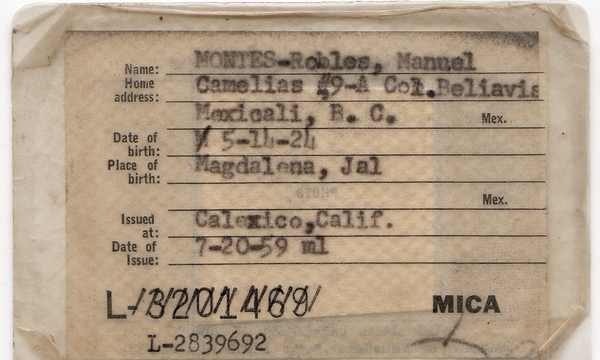 Name: MONTES-Robles, Manuel
Home address: Camelias #9-A Col.Bellavis
Mexicali, B. C. Mex.
Date of birth: 5-14-24
Place of birth: Magdalena, Jal
Mex.
Issued at: Calexico,Calif.
Date of Issue: 7-20-59 ml
L- MICA
L-2839692